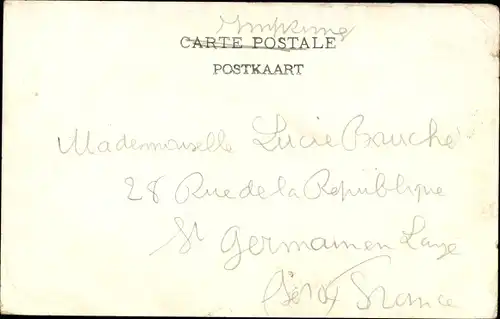 CARTE POSTALE
POSTKAART
Mademoiselle Lucie Bauché
28 Rue de la République
St Germain en Laye
France